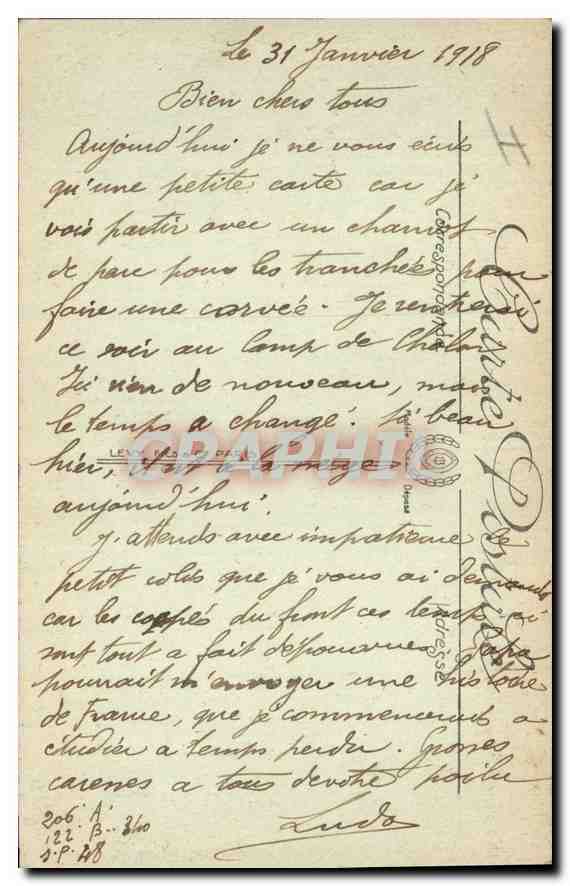 Le 31 Janvier 1918
Bien chers tous
Aujourd'hui je ne vous écris
qu'une petite carte car je
vais partir avec un chariot
de parc pour les tranchées, pour
faire une corvée. Je rentrerai
ce soir au camp de Chalon
Ici rien de nouveau, mais
le temps a changé. Si beau
hier, est à la neige
aujourd'hui.
J'attends avec impatience le
petit colis que je vous ai demandé
car les du front ces temps ci
sont tout a fait dépourvues. Papa
pourrait m'envoyer une histoire
de France, que je commencerais a
étudier a temps perdu. Grosses
caresses a tous de votre poilu
Ludo
206 A
122 B - 340
S.P. 48
Carte Postale
Correspondance
Adresse
LEVY FILS & Cie PARIS
Modèle Déposé
CPAPHIL